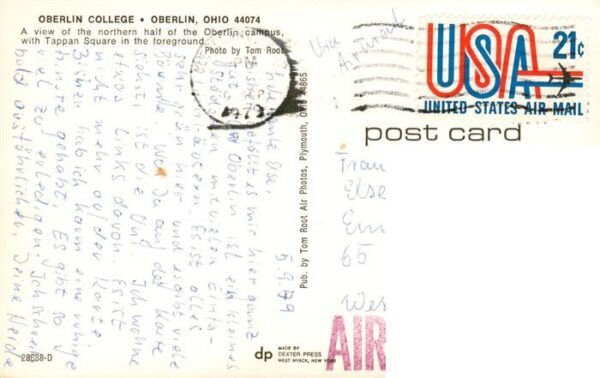 OBERLIN COLLEGE • OBERLIN, OHIO 44074
A view of the northern half of the Oberlin campus,
with Tappan Square in the foreground.
Photo by Tom Root
Via
Airmail
USA 21c
UNITED STATES AIR MAIL
post card
5.9.79
Tante Else,
es mir hier ganz
gut. Oberlin ist ein kleines
mit vielen Einfa-
Es ist alles
sehr grün hier und es gibt viele
Bäume. Was Du auf der Karte
siehst, ist die Uni. Ich wohne
etwas links davon. Es ist
nicht mehr auf der Karte
Bisher hab ich kaum eine ruhige
Minute gehabt. Es gibt so
viel zu erledigen. Ich schreib
bald ausführlicher, Deine Heide
Pub. by Tom Root Air Photos, Plymouth, Ohio 44865
Frau
Else
Em
65
Wes
AIR
28638-D
dp
MADE BY
DEXTER PRESS
WEST NYACK, NEW YORK